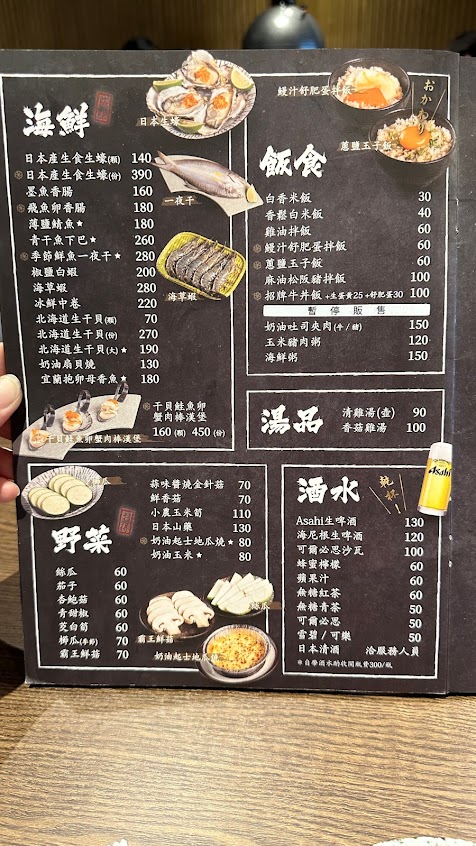 海鮮
日本生蠔
日本產生食生蠔(顆) 140
日本產生食生蠔(份) 390
墨魚香腸 160
飛魚卵香腸 180
薄鹽鯖魚★ 180
青干魚下巴★ 260
季節鮮魚一夜干★ 280
椒鹽白蝦 200
海草蝦 280
冰鮮中卷 220
北海道生干貝(顆) 70
北海道生干貝(份) 270
北海道生干貝(大)★ 190
奶油扇貝燒 130
宜蘭抱卵母香魚★ 180
一夜干
海草蝦
干貝鮭魚卵
蟹肉棒漢堡
160(顆) 450(份)
干貝鮭魚卵蟹肉棒漢堡
鰻汁舒肥蛋拌飯
おかわり
蔥鹽玉子飯
飯食
白香米飯 30
香鬆白米飯 40
雞油拌飯 60
鰻汁舒肥蛋拌飯 60
蔥鹽玉子飯 60
麻油松阪豬拌飯 100
招牌牛丼飯 +生蛋黃25 +舒肥蛋30 100
暫停販售
奶油吐司夾肉(牛/豬) 150
玉米豬肉粥 120
海鮮粥 150
湯品
清雞湯(壺) 90
香菇雞湯 100
野菜
絲瓜 60
茄子 60
杏鮑菇 60
青甜椒 60
茭白筍 60
櫛瓜(季節) 70
霸王鮮菇 70
蒜味醬燒金針菇 70
鮮香菇 70
小農玉米筍 110
日本山藥 130
奶油起士地瓜燒★ 80
奶油玉米★ 80
霸王鮮菇
絲瓜
奶油起士地瓜燒
酒水
乾杯!
Asahi
Asahi生啤酒 130
海尼根生啤酒 120
可爾必思沙瓦 100
蜂蜜檸檬 60
蘋果汁 60
無糖紅茶 50
無糖青茶 50
可爾必思 50
雪碧/可樂 50
日本清酒 洽服務人員
※自帶酒水酌收開瓶費300/瓶